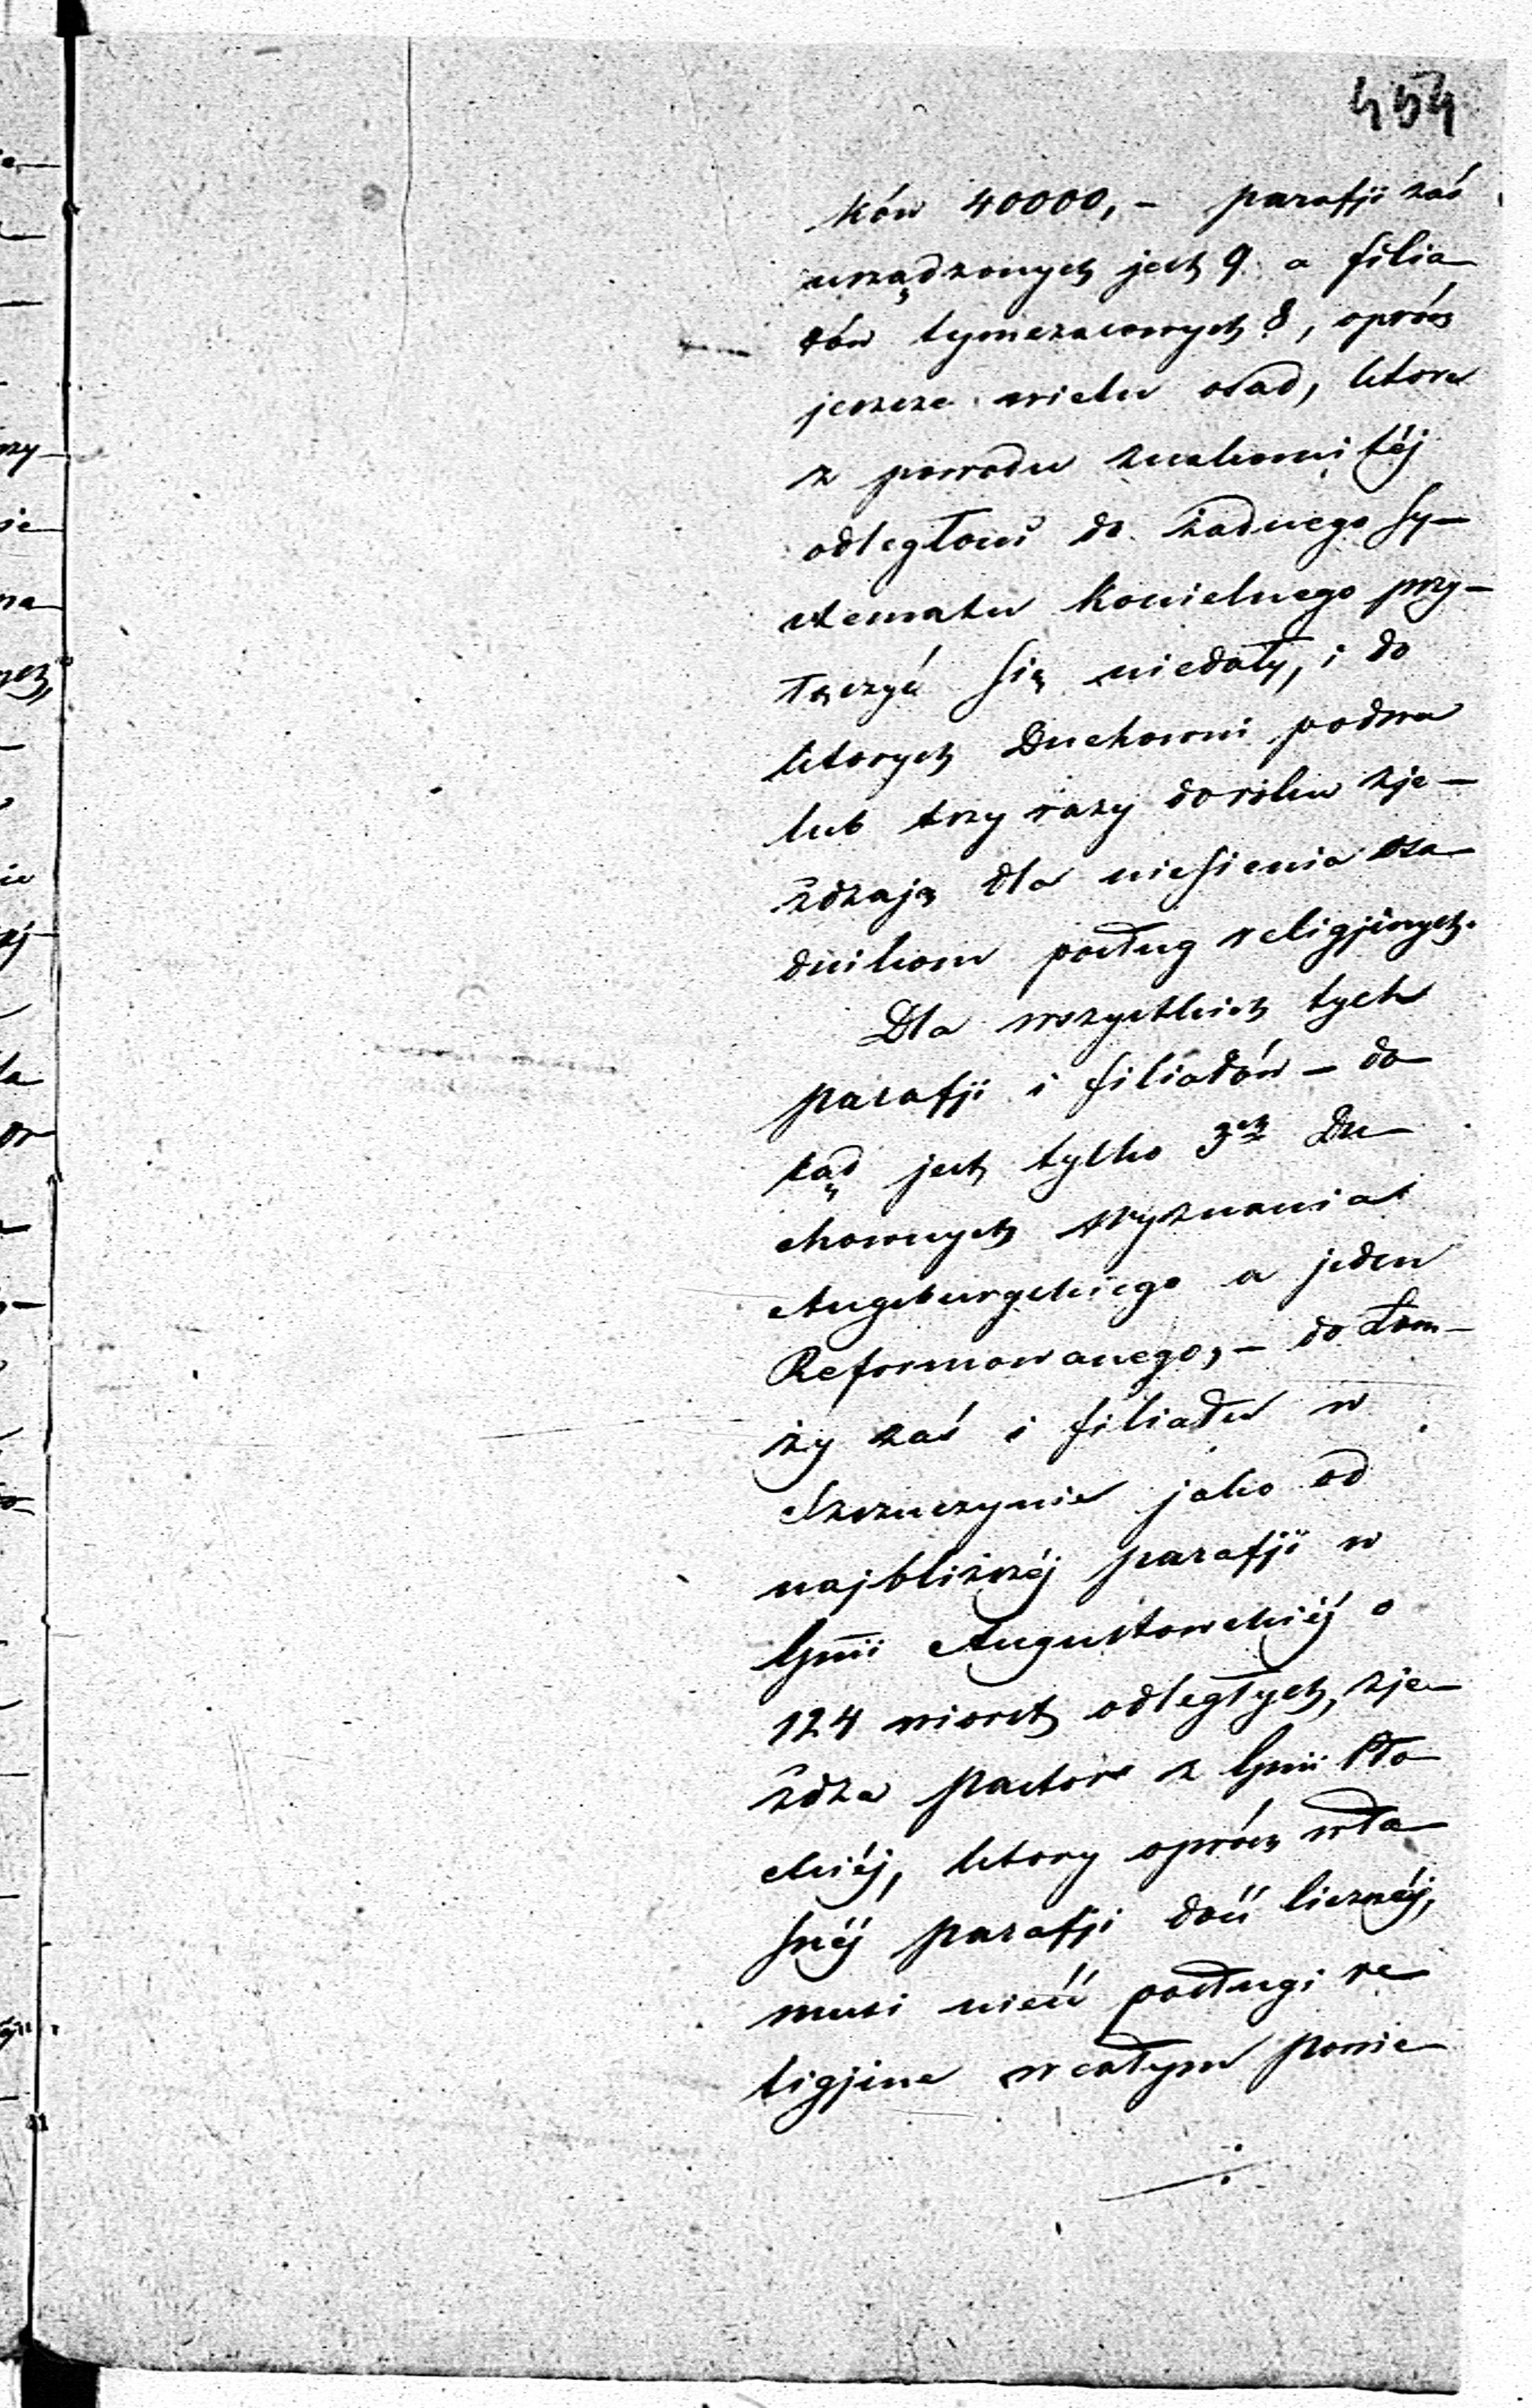 454
ków 40000,- parafji zaś
urządzonych jest 9 a filia
łów tymczasowych 8, oprócz
jeszcze wielu osad, które
z powodu znakomitéj
odległości do żadnego sy-
stematu Kościelnego przy-
łączyć się niedały, i do
których Duchowni podwa
lub trzy razy doroku zje-
żdzają dla niesienia osa
dnikom posług religijnych.
Dla wszystkich tych
parafji i filiałów - do
tąd jest tylko 3ch Du
chownych Wyznania
Augsburgskiego a jeden
Reformowanego, - do Łom-
ży zaś i filiału w
Szczuczynie jako od
najbliższéj parafji w
Gnii Augustowskiéj o
124 wiorst odległych, zje
żdza Pastor z Gnii Pło
ckiéj, który oprócz wła
snéj parafji dość licznéj,
musi nieść posługi re
ligijne w całym powie